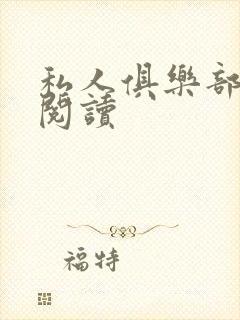 私人俱樂部
閱讀
福特